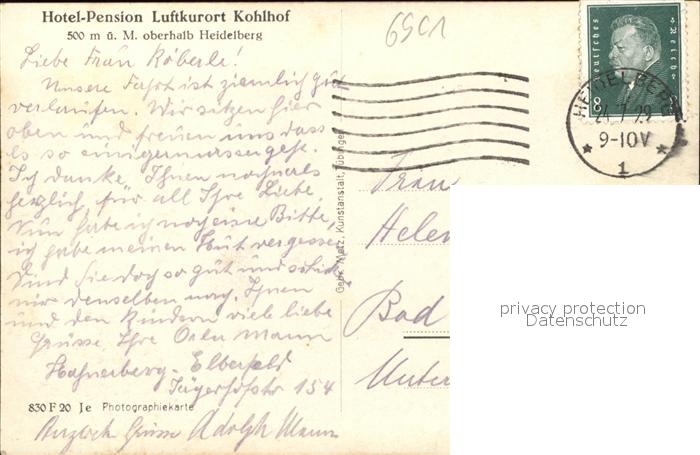 Hotel-Pension Luftkurort Kohlhof
500 m ü. M. oberhalb Heidelberg
6901
Deutsches Reich
8
HEIDELBERG
24.7.29
9-10V
1
Liebe Frau Köberle!
Unsere Fahrt ist ziemlich gut
verlaufen. Wir sitzen hier
oben und freuen uns dass
es so einigermassen geht.
Ich danke Ihnen nochmals
herzlich für all Ihre Liebe.
Nun habe ich noch eine Bitte,
ich habe meinen Hut vergessen
Sind Sie doch so gut und schicken
mir denselben nach. Ihnen
und den Kindern viele liebe
Grüsse Ihre Mann
Elberfeld
Jägerhofstr 154
Gebr. Metz, Kunstanstalt, Tübingen
Frau
Helen
Bad
Unter
830 F 20 Je Photographiekarte
Grüsse Adolph Mann
privacy protection
Datenschutz